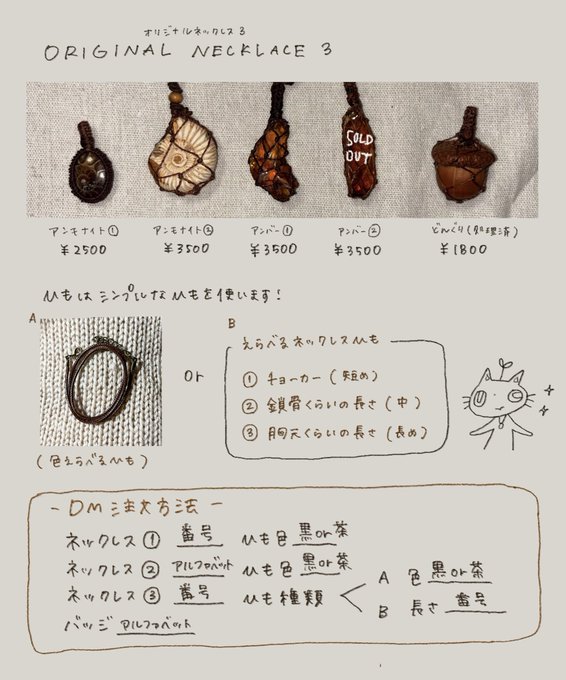 オリジナルネックレス3
ORIGINAL NECKLACE 3
SOLD OUT
アンモナイト① アンモナイト② アンバー① アンバー② どんぐり(処理済)
¥2500 ¥3500 ¥3500 ¥3500 ¥1800
ひもはシンプルなひもを使います!
A
(色えらべるひも)
or
B
えらべるネックレスひも
① チョーカー(短め)
② 鎖骨くらいの長さ(中)
③ 胸元くらいの長さ(長め)
- DM注文方法 -
ネックレス① 番号 ひも色 黒or茶
ネックレス② アルファベット ひも色 黒or茶
ネックレス③ 番号 ひも種類
A 色 黒or茶
B 長さ 番号
バッジ アルファベット